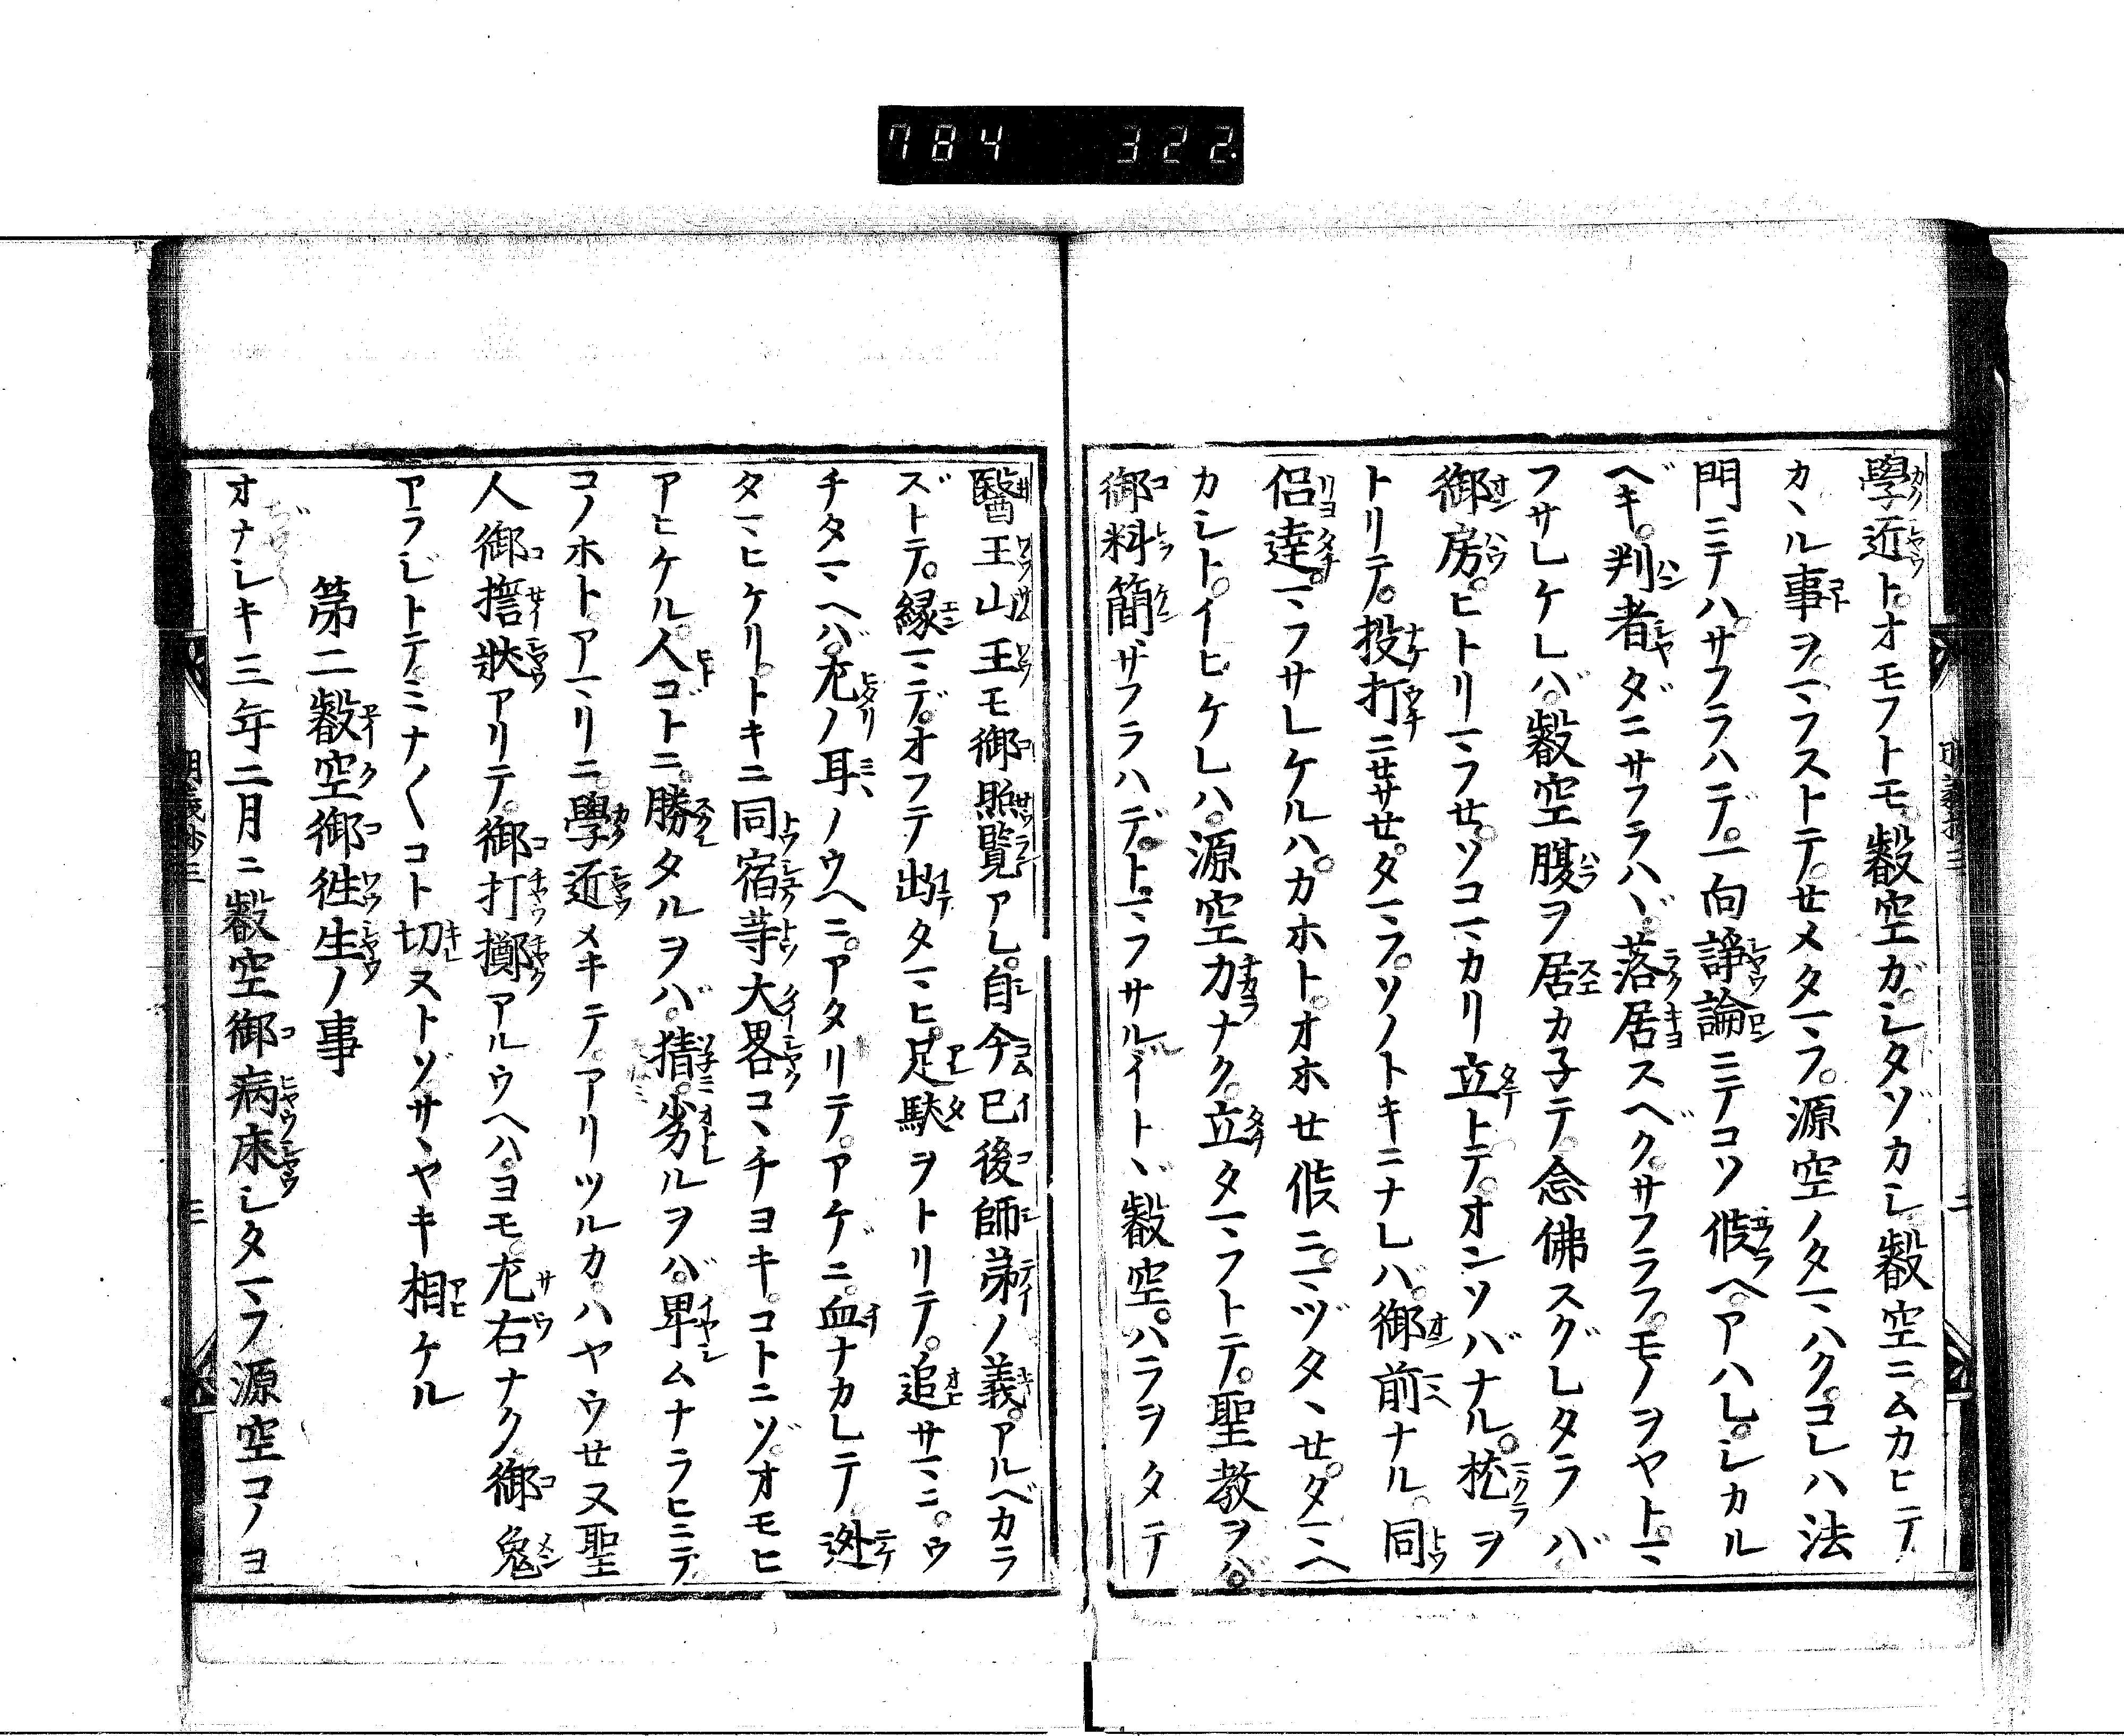 784 322.
學近ト。オモフトモ。叡空ガ。シタゾカシ叡空ニムカヒテ
カヽル事ヲ。マフストテ。せメタマフ。源空ノタマハク。コレハ法
門ニテハ。サフラハデ。一向諍論ニテコソ候ヘ。アハレ。シカル
ベキ。判者ダニサフラハヾ。落居スベク。サフラフ。モノヲヤト。マ
フサレケレバ。叡空腹ヲ居カ子テ。念佛スグレタラバ
御房。ヒトリマフせ。ソコマカリ立トテ。オンソバナル。枕ヲ
トリテ。投打ニせサせ。タマフ。ソノトキニナレバ。御前ナル。同
侶達。マフサレケルハ。カホト。オホせ候ニ。マヅタヽせ。タマヘ
カシト。イヒケレハ。源空力ナク。立タマフトテ。聖教ヲバ。
御料簡ザフラハデ。トマフサルイトヽ叡空。ハラヲタテ
醫王山王モ御照覧アレ。自今已後師弟ノ義。アルベカラ
ズトテ。縁マデ。オフテ出タマヒ。足駄ヲトリテ。追サマニ。ウ
チタマヘバ。左ノ耳ノウヘニ。アタリテ。アケ゛ニ。血ナカレテ。迯
タマヒケリ。トキニ同宿等大畧コヽチヨキ。コトニゾ。オモヒ
アヒケル。人ゴトニ。勝タルヲバ。猜。劣ルヲバ。卑ムナラヒニテ
コノホト。アマリニ。學近メキテ。アリツルカ。ハヤウせヌ聖
人御誓状アリテ。御打擲アルウヘハ。ヨモ。左右ナク。御免
アラジトテ。ミナ〱コト切ヌトゾ。サヽヤキ相ケル
第二叡空御徃生ノ事
オナシキ三年二月ニ叡空御病床シタマフ源空コノヨ
明義抄三
三
二